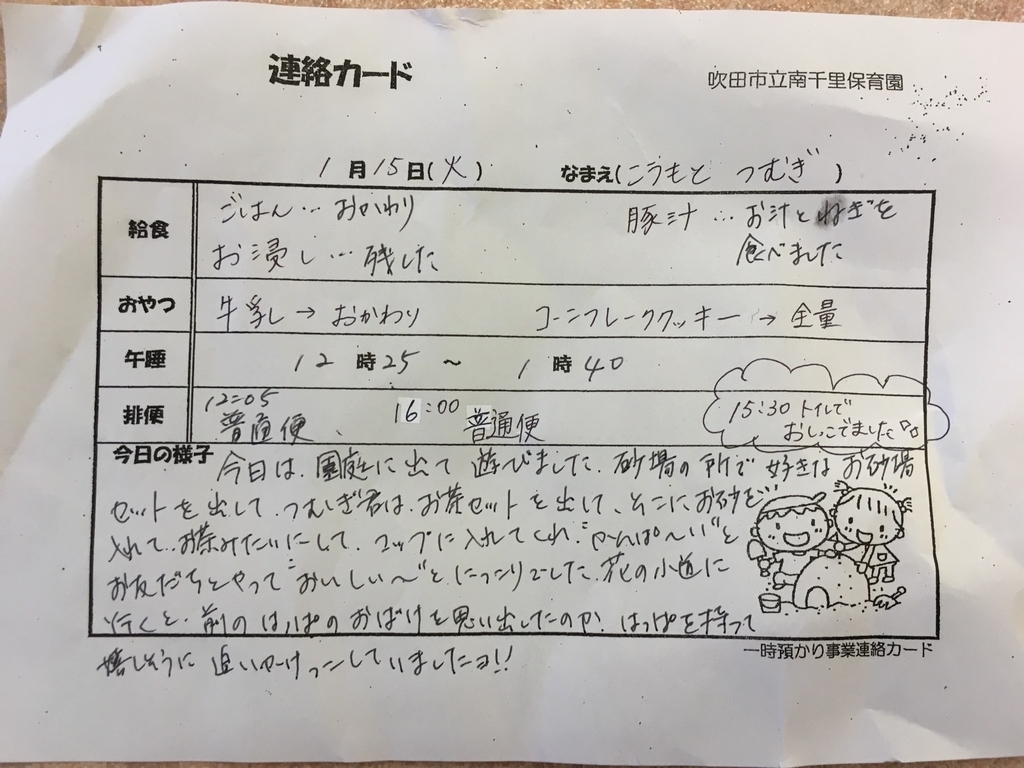 連絡カード
吹田市立南千里保育園
1月15日(火) なまえ(こうもと つむぎ )
給食 ごはん…おかわり 豚汁…お汁とねぎを
お浸し…残した 食べました
おやつ 牛乳→おかわり コーンフレーククッキー→全量
午睡 12時25〜1時40
排便 12:05 16:00 15:30 トイレで
普通便、 普通便 おしっこでました
今日の様子 今日は、園庭に出て遊びました。砂場の所で好きなお砂場
セットを出して、つむぎ君は、お茶セットを出して、そこにお砂を
入れて、お茶みたいにして、コップに入れてくれ“かんぱ〜い”と
お友だちとやって“おいしい〜”と、にっこりでした。花の小道に
行くと、前のはっぱのおばけを思い出したのか、はっぱを持って
嬉しそうに追いかけっこしていましたヨ!!
一時預かり事業連絡カード